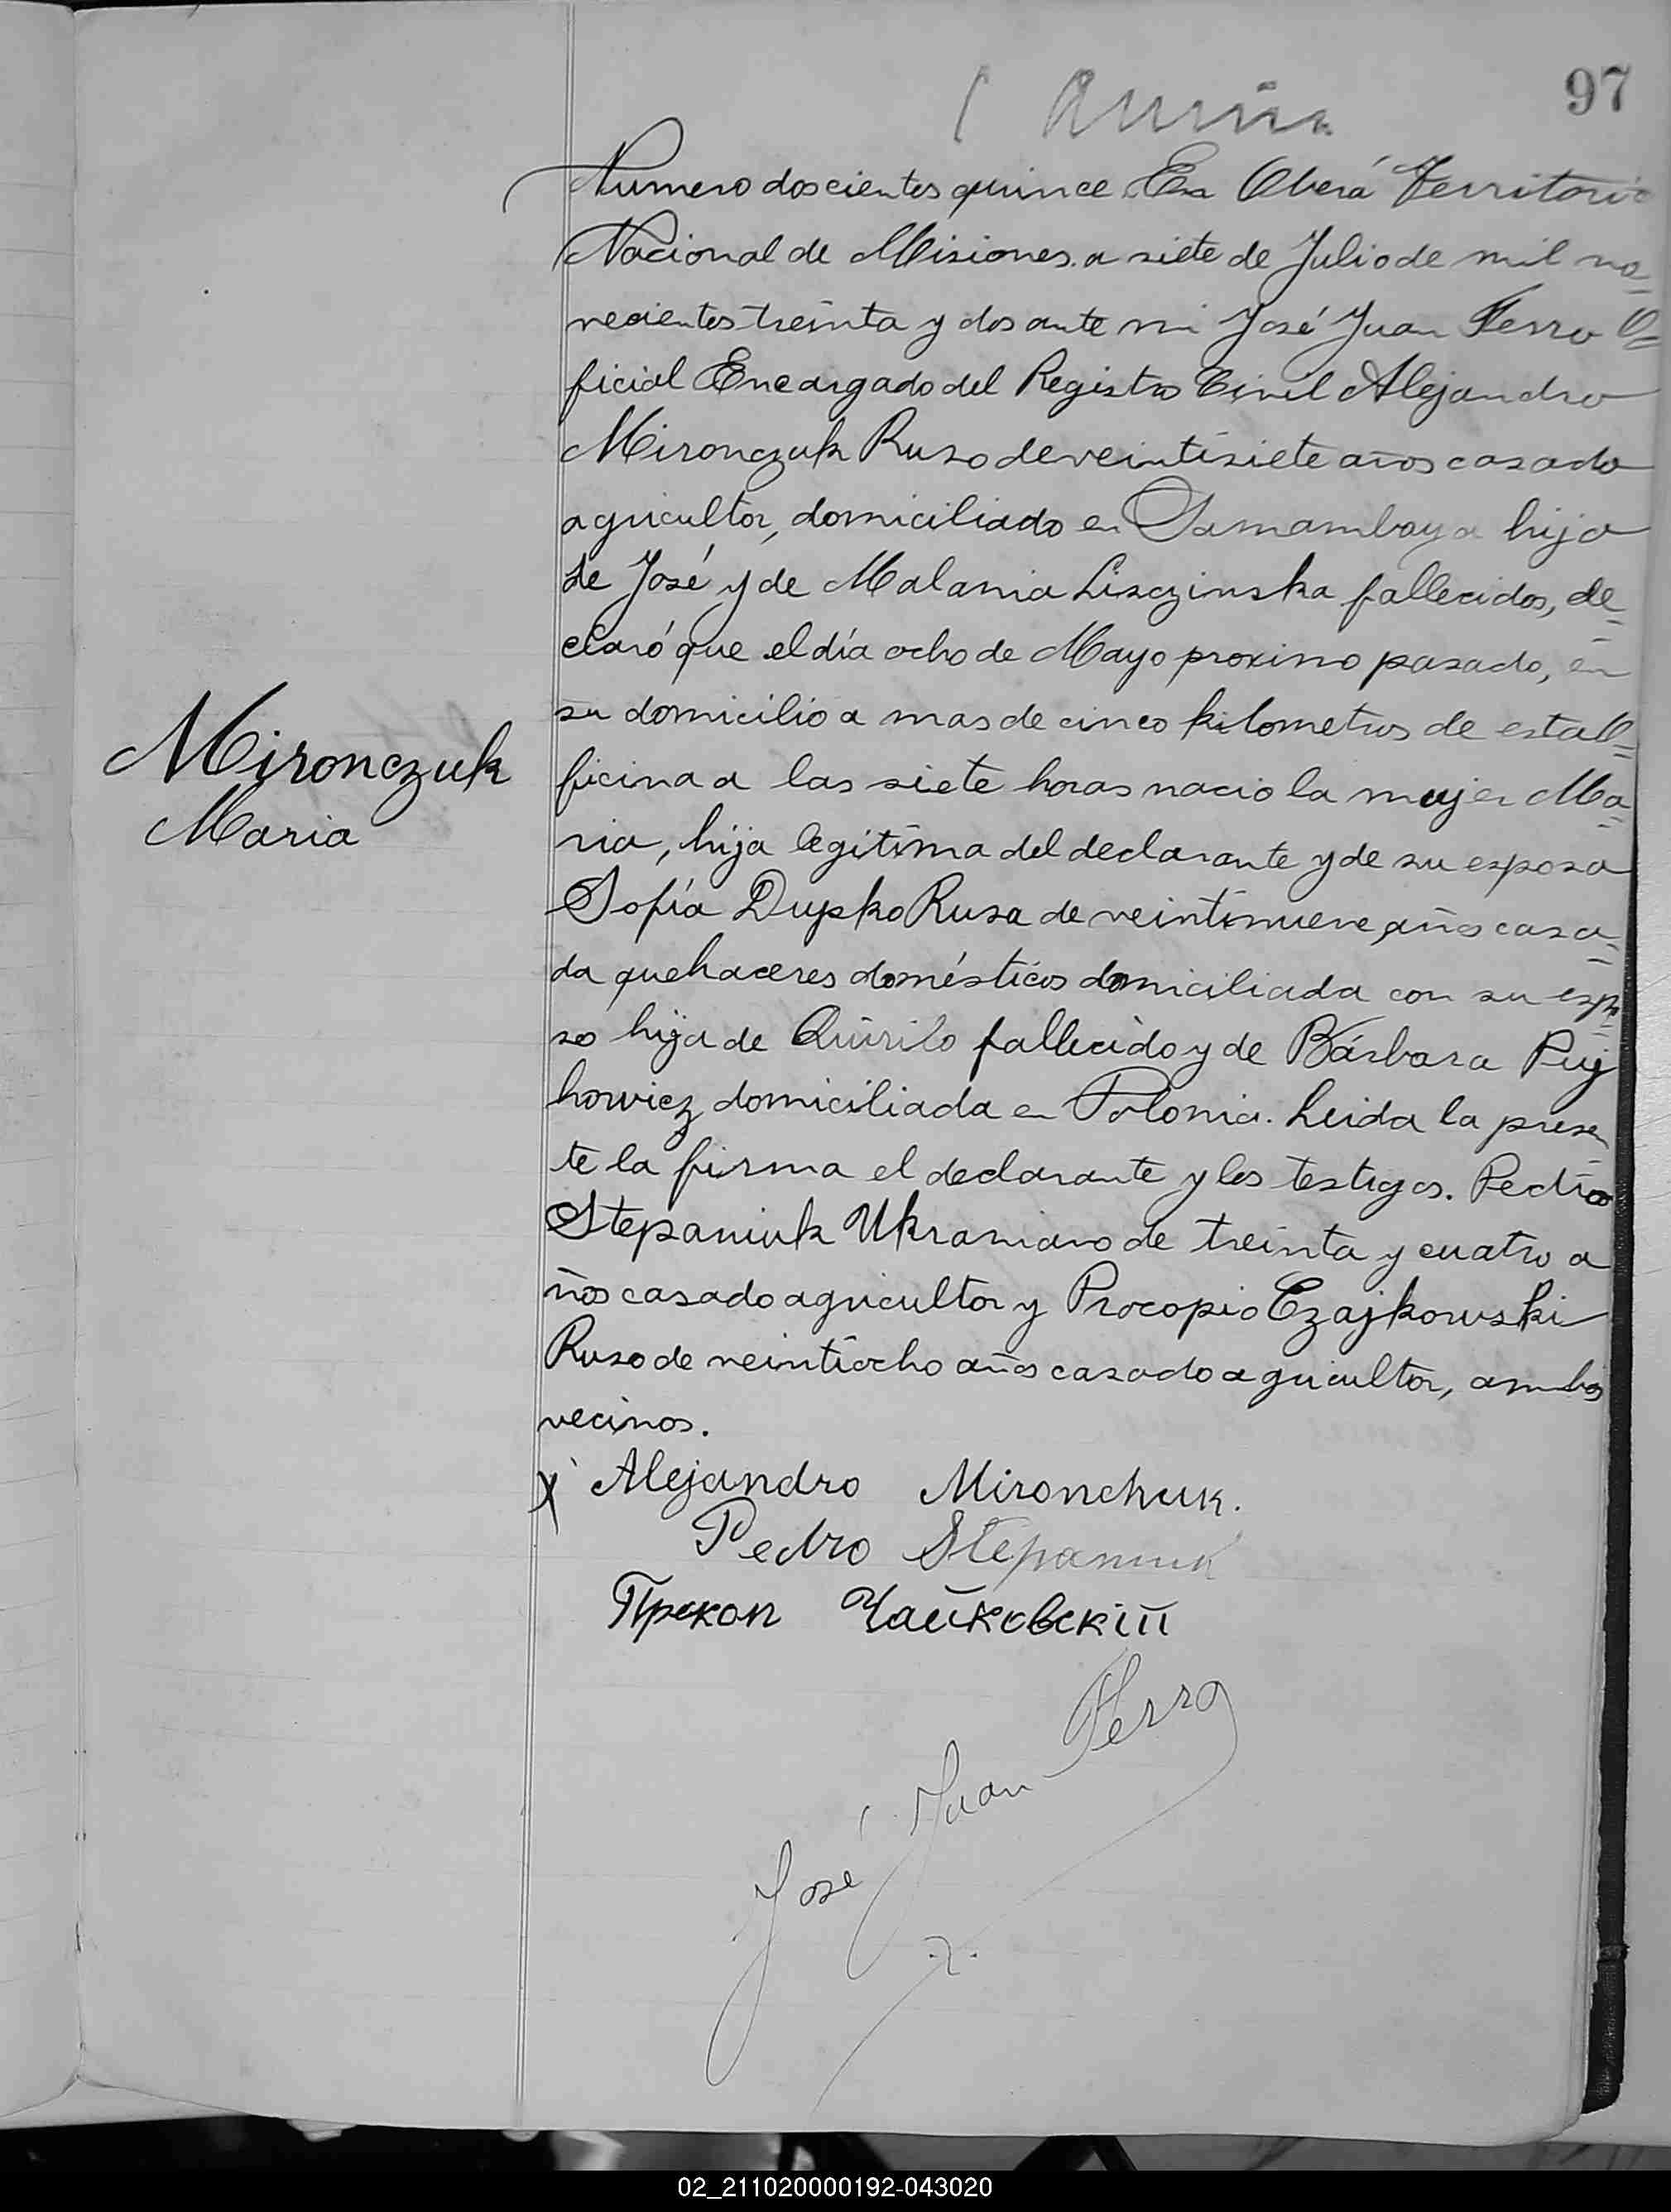 97
Numero doscientos quince En Oberá Territorio
Nacional de Misiones a siete de Julio de mil no=
vecientos treinta y dos ante mi José Juan Ferro O=
ficial Encargado del Registro Civil Alejandro
Mironczuk Ruso de veintisiete años casado
agricultor, domiciliado en Samambaya hijo
de José y de Malania Lisczinska fallecidos, de=
claró que el día ocho de Mayo proximo pasado, en
su domicilio a mas de cinco kilometros de esta O=
ficina a las siete horas nacio la mujer Ma=
ria, hija legítima del declarante y de su esposa
Sofía Dupko Rusa de veintinueve años casa=
da quehaceres domésticos domiciliada con su espo=
so hija de Quirilo fallecido y de Bárbara Puj
howicz domiciliada en Polonia. Leida la presen=
te la firma el declarante y los testigos. Pedro
Stepaniuk Ukraniano de treinta y cuatro a
ños casado agricultor y Procopio Czajkowski
Ruso de veintiocho años casado agricultor, ambos
vecinos.
Mironczuk
Maria
X Alejandro Mironchuk.
Pedro Stepaniuk
Прокоп Чайковскій
José Juan Ferro
02_211020000192-043020